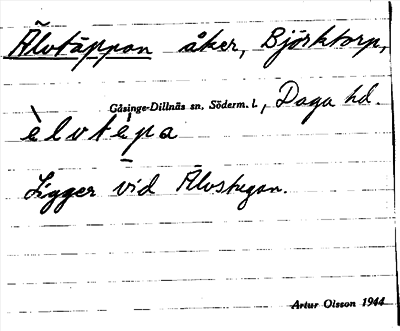 Älvtäppan åker, Björktorp,
Gåsinge-Dillnäs sn, Söderm. l., Daga hd.
èlvtépa
Ligger vid Älvstugan.
Artur Olsson 1944